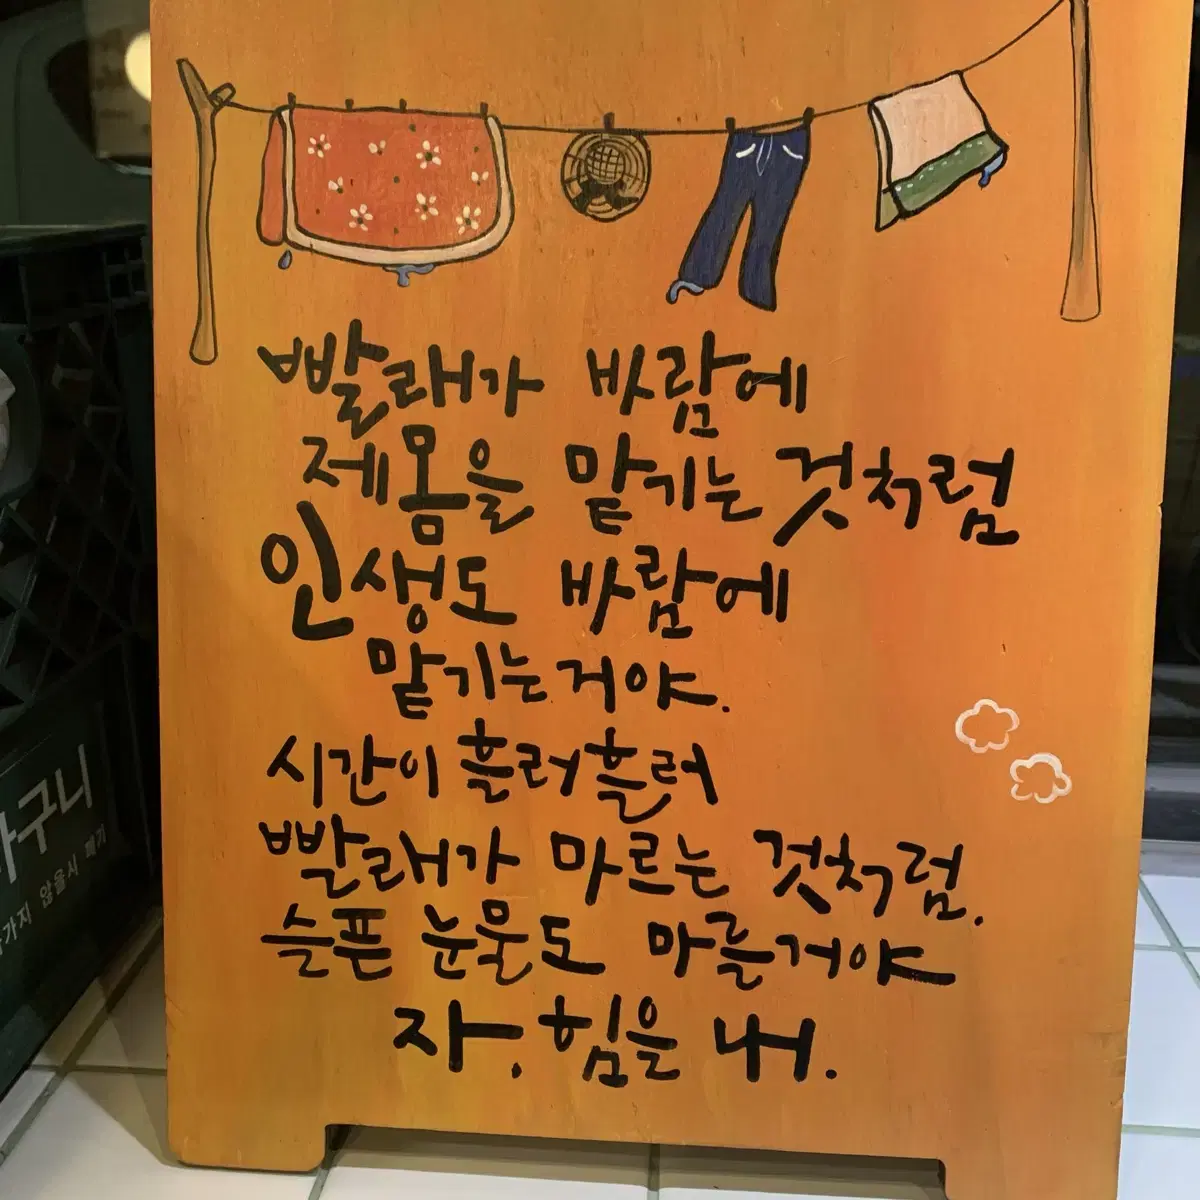 빨래가 바람에
제몸을 맡기는 것처럼
인생도 바람에
맡기는거야.
시간이 흘러흘러
빨래가 마르는 것처럼.
슬픈 눈물도 마를거야
자, 힘을 내.
구니
않을시 폐기